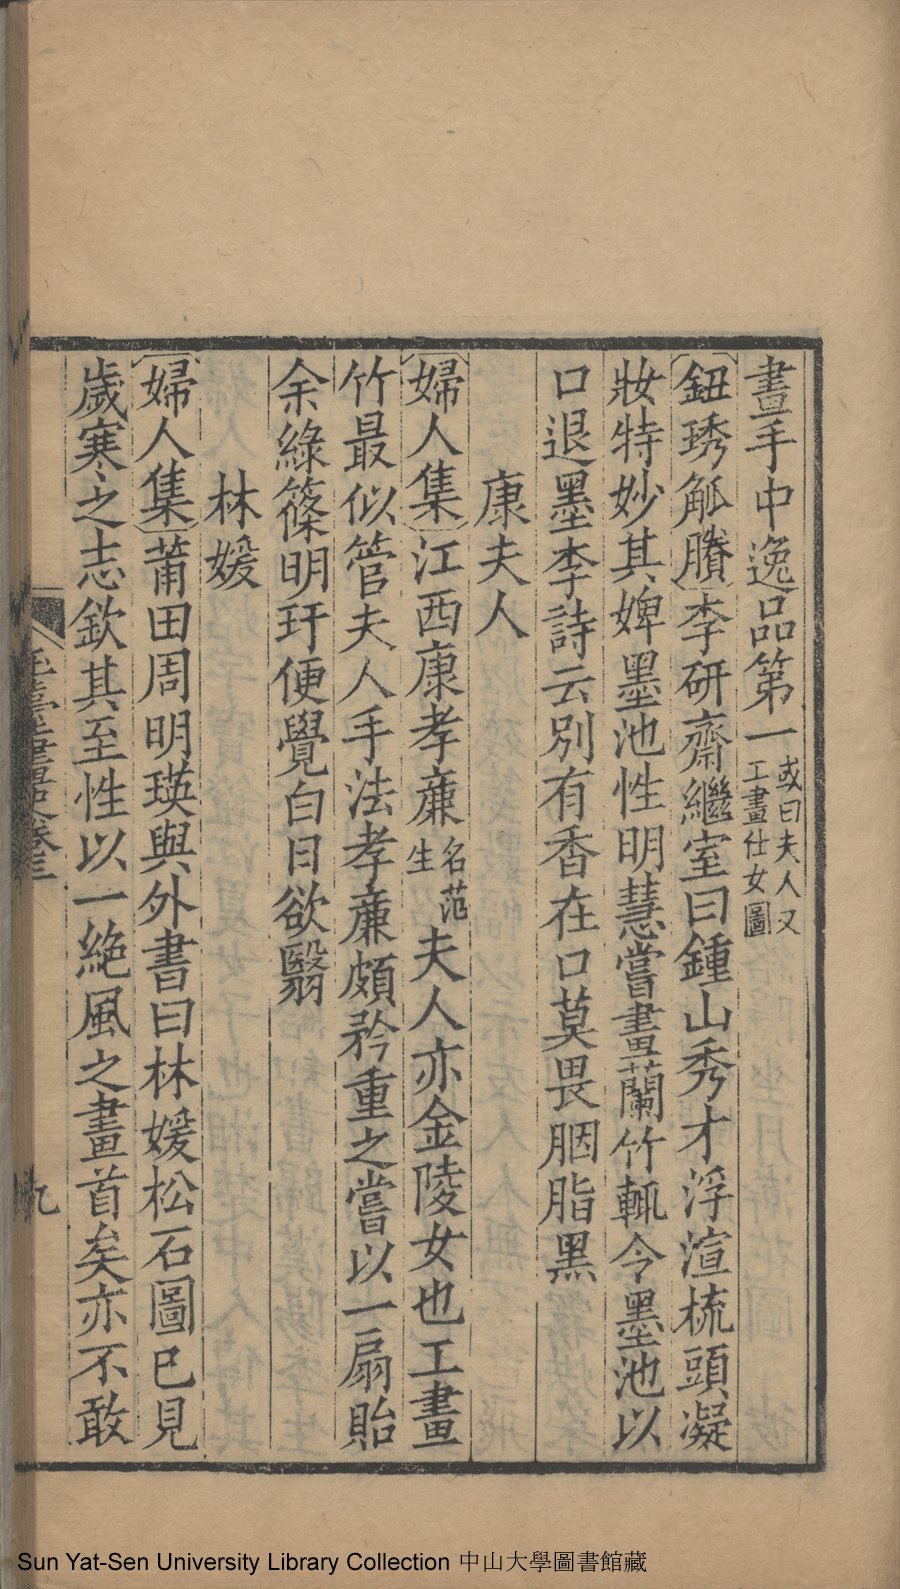 畫手中逸品第一或曰夫人又工畫仕女圖
鈕琇觚賸李研齋繼室曰鍾山秀才浮渲梳頭凝
妝特妙其婢墨池性明慧嘗畫蘭竹輒令墨池以
口退墨李詩云別有香在口莫畏胭脂黑
康夫人
婦人集江西康孝亷名范生夫人亦金陵女也工畫
竹最似管夫人手法孝亷頗矜重之嘗以一扇貽
余綠篠明玕便覺白日欲翳
林媛
婦人集莆田周明瑛與外書曰林媛松石圖已見
歲寒之志欽其至性以一絕風之畫首矣亦不敢
玉臺畫史卷三
九
Sun Yat-Sen University Library Collection 中山大學圖書館藏